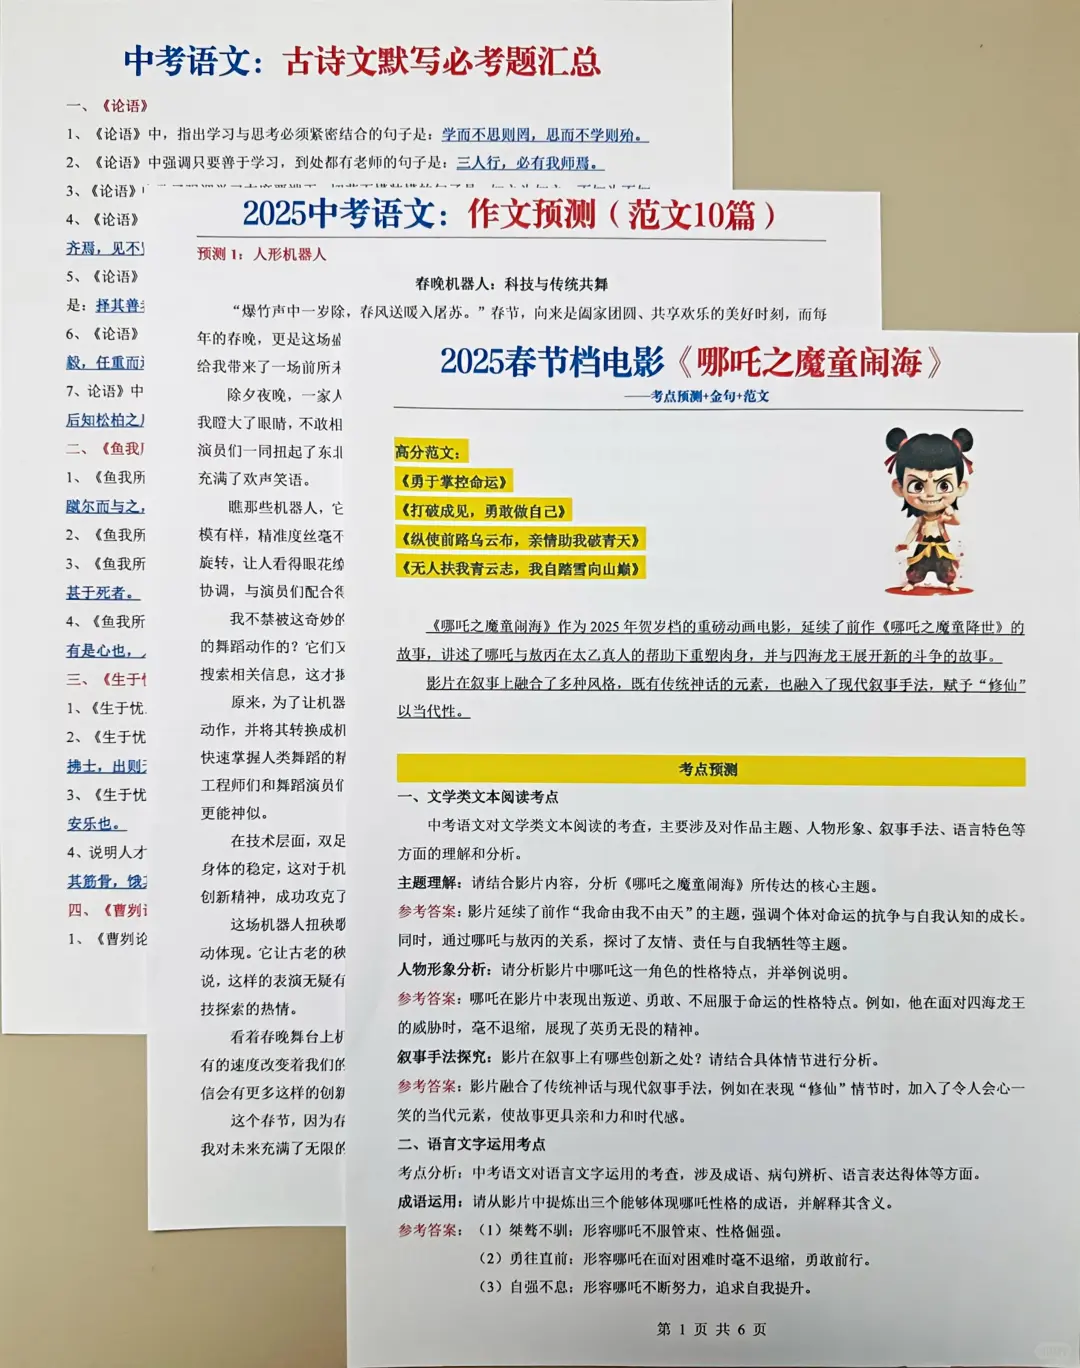 中考语文：古诗文默写必考题汇总
一、《论语》
1、《论语》中，指出学习与思考必须紧密结合的句子是：学而不思则罔，思而不学则殆。
2、《论语》中强调只要善于学习，到处都有老师的句子是：三人行，必有我师焉。
3、《论语》
4、《论语》
齐焉，见不
5、《论语》
是：择其善
6、《论语》
毅，任重而
7、论语》中
后知松柏之
二、《鱼我
1、《鱼我所
蹴尔而与之，
2、《鱼我所
3、《鱼我所
甚于死者。
4、《鱼我所
有是心也，
三、《生于
1、《生于忧
2、《生于忧
拂士，出则
3、《生于忧
安乐也。
4、说明人才
其筋骨，饿
四、《曹刿
1、《曹刿论
2025中考语文：作文预测（范文10篇）
预测1：人形机器人
春晚机器人：科技与传统共舞
“爆竹声中一岁除，春风送暖入屠苏。”春节，向来是阖家团圆、共享欢乐的美好时刻，而每
年的春晚，更是这场
给我带来了一场前所未
除夕夜晚，一家人
我瞪大了眼睛，不敢相
演员们一同扭起了东北
充满了欢声笑语。
瞧那些机器人，它
模有样，精准度丝毫不
旋转，让人看得眼花缭
协调，与演员们配合得
我不禁被这奇妙的
的舞蹈动作的？它们又
搜索相关信息，这才
原来，为了让机器
动作，并将其转换成机
快速掌握人类舞蹈的精
工程师们和舞蹈演员们
更能神似。
在技术层面，双足
身体的稳定，这对于机
创新精神，成功攻克了
这场机器人扭秧歌
动体现。它让古老的秧
说，这样的表演无疑有
技探索的热情。
看着春晚舞台上机
有的速度改变着我们的
信会有更多这样的创新
这个春节，因为春
我对未来充满了无限的
2025春节档电影《哪吒之魔童闹海》
——考点预测+金句+范文
高分范文：
《勇于掌控命运》
《打破成见，勇敢做自己》
《纵使前路乌云布，亲情助我破青天》
《无人扶我青云志，我自踏雪向山巅》
《哪吒之魔童闹海》作为2025年贺岁档的重磅动画电影，延续了前作《哪吒之魔童降世》的
故事，讲述了哪吒与敖丙在太乙真人的帮助下重塑肉身，并与四海龙王展开新的斗争的故事。
影片在叙事上融合了多种风格，既有传统神话的元素，也融入了现代叙事手法，赋予“修仙”
以当代性。
考点预测
一、文学类文本阅读考点
中考语文对文学类文本阅读的考查，主要涉及对作品主题、人物形象、叙事手法、语言特色等
方面的理解和分析。
主题理解：请结合影片内容，分析《哪吒之魔童闹海》所传达的核心主题。
参考答案：影片延续了前作“我命由我不由天”的主题，强调个体对命运的抗争与自我认知的成长。
同时，通过哪吒与敖丙的关系，探讨了友情、责任与自我牺牲等主题。
人物形象分析：请分析影片中哪吒这一角色的性格特点，并举例说明。
参考答案：哪吒在影片中表现出叛逆、勇敢、不屈服于命运的性格特点。例如，他在面对四海龙王
的威胁时，毫不退缩，展现了英勇无畏的精神。
叙事手法探究：影片在叙事上有哪些创新之处？请结合具体情节进行分析。
参考答案：影片融合了传统神话与现代叙事手法，例如在表现“修仙”情节时，加入了令人会心一
笑的当代元素，使故事更具亲和力和时代感。
二、语言文字运用考点
考点分析：中考语文对语言文字运用的考查，涉及成语、病句辨析、语言表达得体等方面。
成语运用：请从影片中提炼出三个能够体现哪吒性格的成语，并解释其含义。
参考答案：（1）桀骜不驯：形容哪吒不服管束、性格倔强。
（2）勇往直前：形容哪吒在面对困难时毫不退缩，勇敢前行。
（3）自强不息：形容哪吒不断努力，追求自我提升。
第 1 页 共 6 页